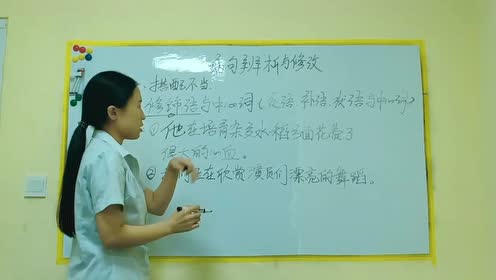 病句辨析与修改
搭配不当
修饰语与中心词(定语、补语、状语与中心词)
①他在培育杂交水稻方面花费了
很大的心血
②我们正在欣赏演员们漂亮的舞蹈。